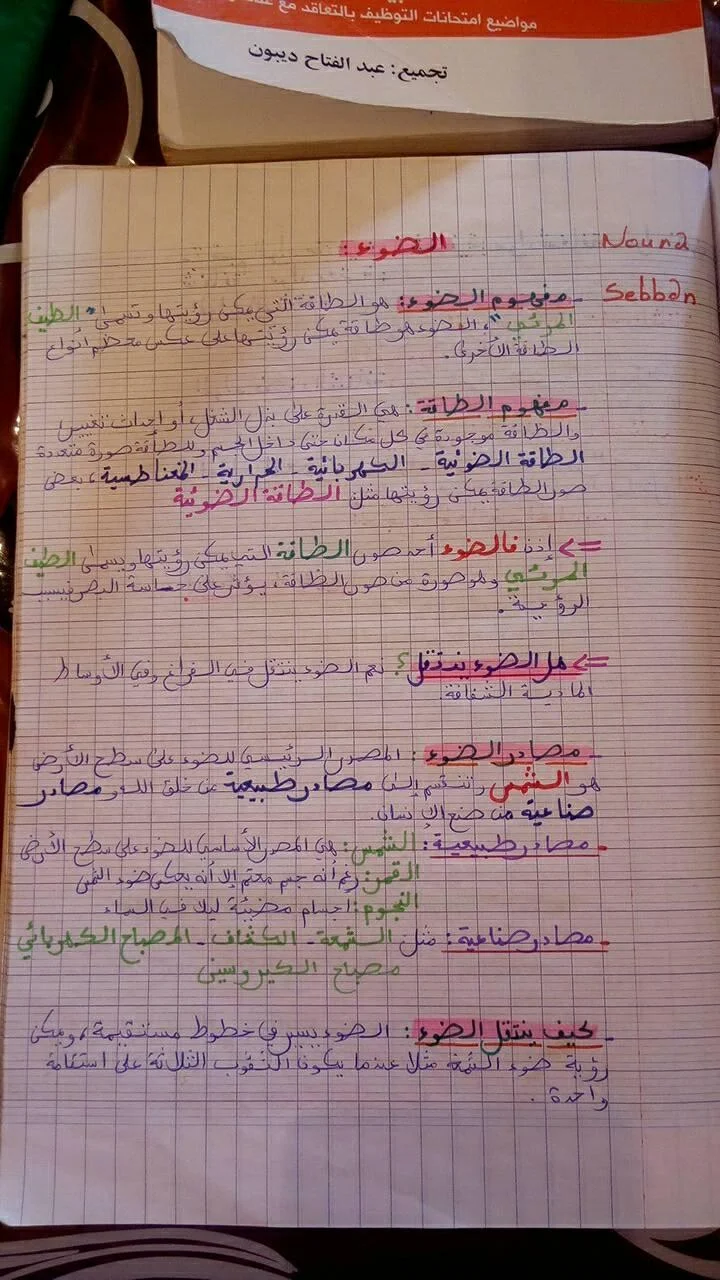 مواضيع امتحانات التوظيف بالتعاقد مع
تجميع: عبد الفتاح ديبون
Noura
Sebban
الضوء:
- مفهوم الضوء: هو الطاقة التي يمكن رؤيتها وتسمى "الطيف
المرئي"، الضوء هو طاقة يمكن رؤيتها على عكس معظم أنواع
الطاقة الأخرى.
- مفهوم الطاقة: هي القدرة على بذل الشغل، أو إحداث تغيير
والطاقة موجودة في كل مكان حتى داخل الجسم وللطاقة صورة متعددة
الطاقة الضوئية - الكهربائية - الحرارية - المغناطسية، بعض
صور الطاقة يمكن رؤيتها مثل الطاقة الضوئية
=> إذن فالضوء أحد صور الطاقة التي يمكن رؤيتها ويسمى الطيف
المرئي وهو صورة من صور الطاقة، يؤثر على حاسة البصر فيسبب
الرؤية.
=> هل الضوء ينتقل؟ نعم الضوء ينتقل في الفراغ وفي الأوساط
المادية الشفافة.
- مصادر الضوء: المصدر الرئيسي للضوء على سطح الأرض
هو الشمس وتنقسم إلى مصادر طبيعية من خلق الله ومصادر
صناعية من صنع الإنسان.
- مصادر طبيعية: الشمس: هي المصدر الأساسي للضوء على سطح الأرض
القمر: رغم أنه جسم معتم إلا أنه يعكس ضوء الشمس
النجوم: اجسام مضيئة ليلا في السماء
- مصادر صناعية: مثل الشمعة - الكشاف - المصباح الكهربائي
مصباح الكيروسين
- كيف ينتقل الضوء: الضوء يسير في خطوط مستقيمة، ويمكن
رؤية ضوء الشمعة مثلا عندما يكون الثقوب الثلاثة على استقامة
واحدة.